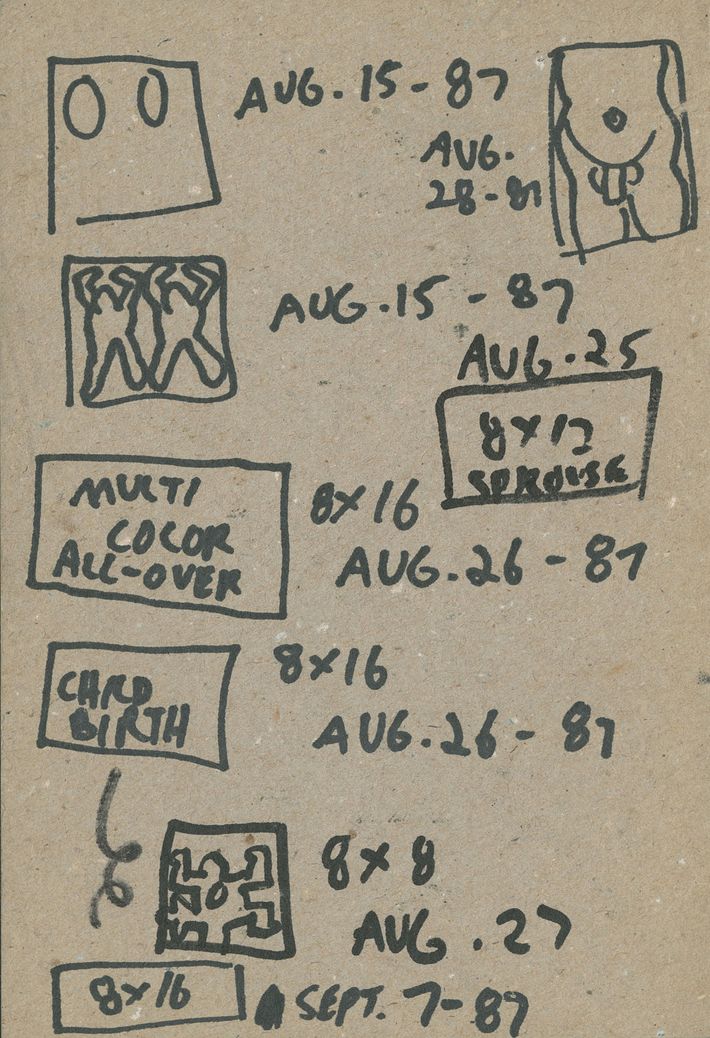 AUG. 15 - 87
AUG.
28 - 87
AUG. 15 - 87
AUG. 25
8 X 12
SPROUSE
MULTI
COLOR
ALL-OVER
8X16
AUG. 26 - 87
CHILD
BIRTH
8X16
AUG. 26 - 87
8 X 8
AUG. 27
8X16
SEPT. 7 - 87